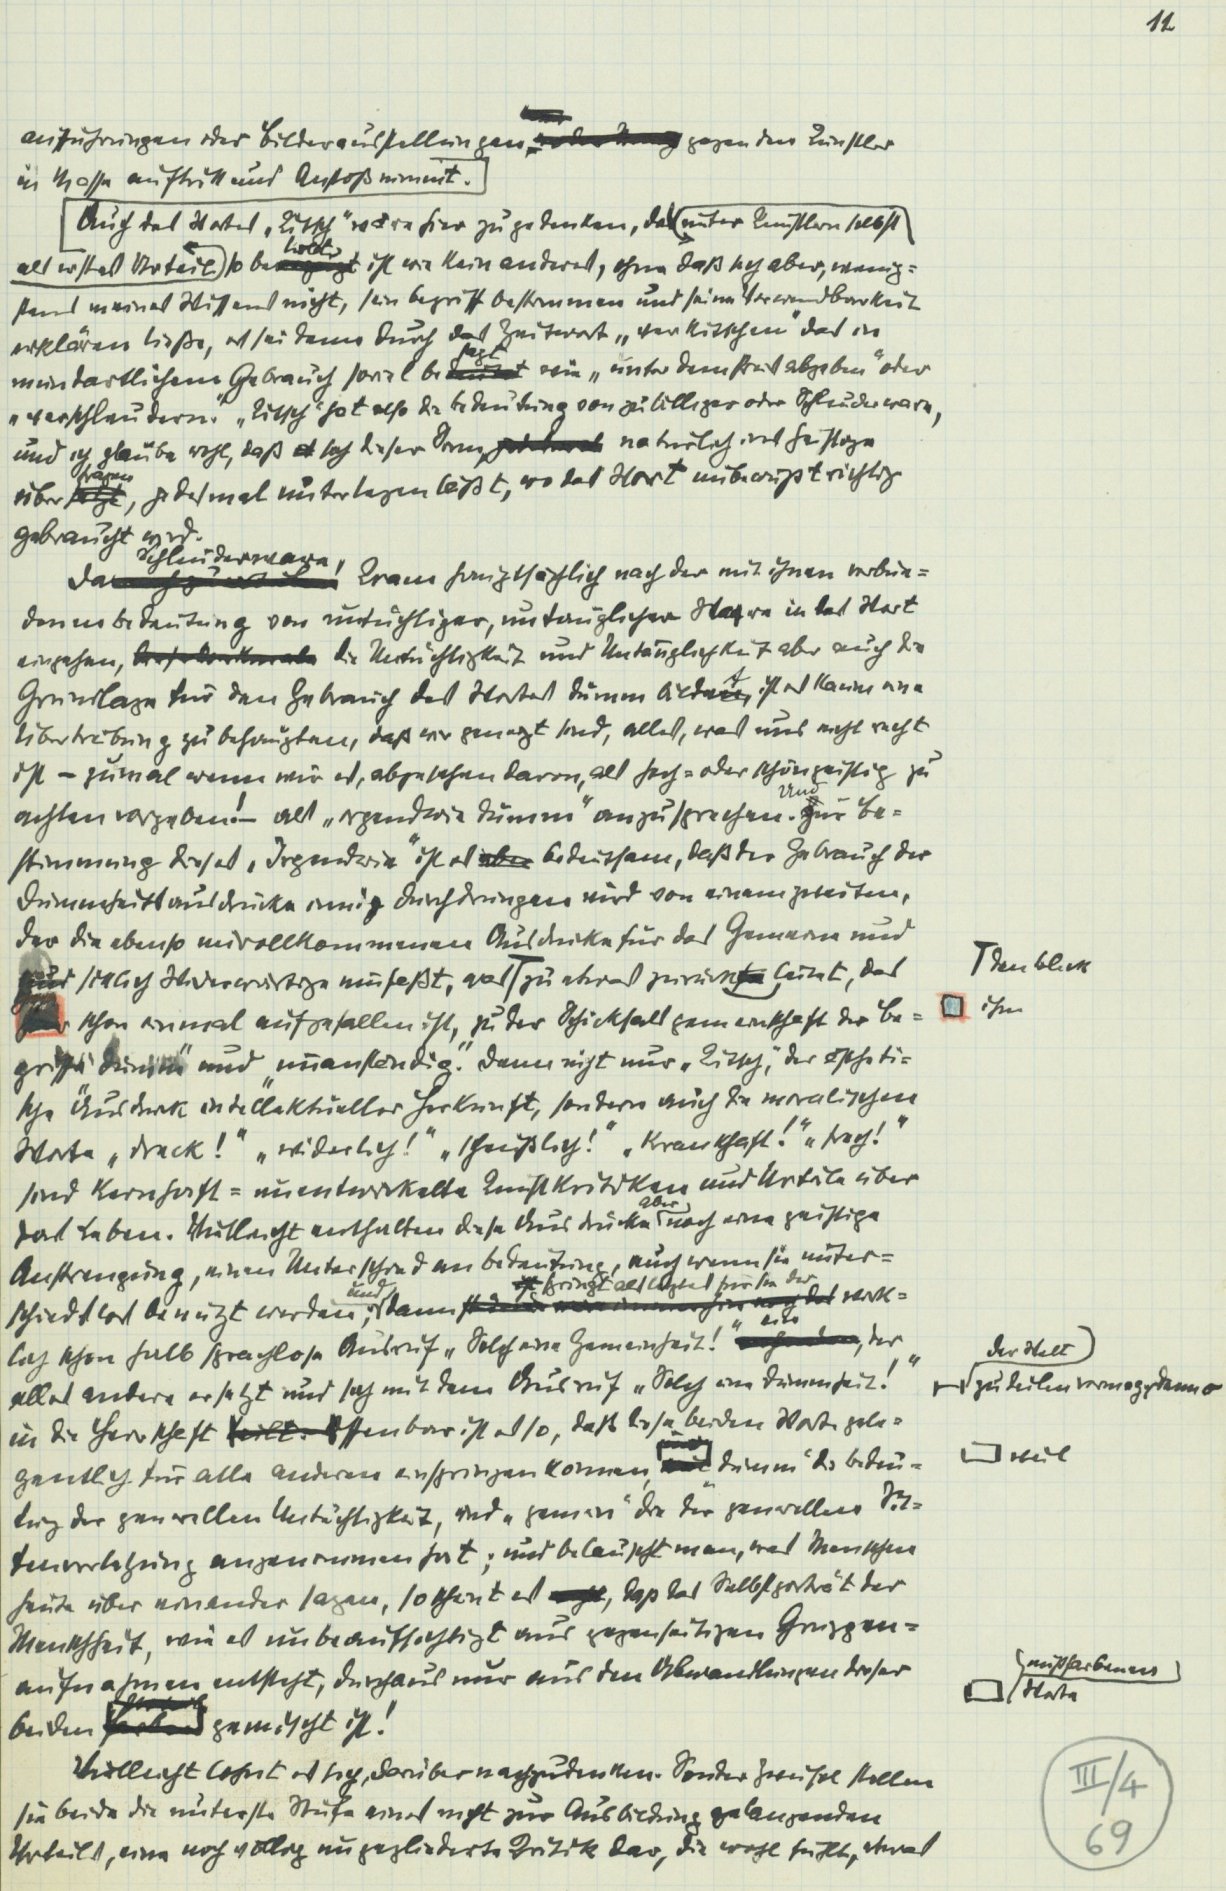 12
aufführungen oder Bilderausstellungen, gegen den Künstler
in Masse auftritt und Anstoß nimmt.
Auch des Wortes „Kitsch" wäre hier zu gedenken, das (unter Künstlern selbst
als erstes Urteil) so beliebt ist wie kein anderes, ohne daß sich aber, wenig=
stens meines Wissens nicht, sein Begriff bestimmen und seine Verwendbarkeit
erklären ließe, es sei denn durch das Zeitwort „verkitschen" das im
mundartlichem Gebrauch soviel besagt wie „unter dem Preis abgeben" oder
„verschleudern". „Kitsch" hat also die Bedeutung von zu billiger oder Schleuderware,
und ich glaube wohl, daß sich dieser Sinn, natürlich ins Geistige
übertragen, jedesmal unterlegen läßt, wo das Wort unbewußt richtig
gebraucht wird.
Da Schleuderware, Kram hauptsächlich nach der mit ihnen verbun=
denen Bedeutung von untüchtiger, untauglicher Ware in das Wort
eingehen, die Untüchtigkeit und Untauglichkeit aber auch die
Grundlage für den Gebrauch des Wortes dumm bildet, ist es kaum eine
Übertreibung zu behaupten, daß wir geneigt sind, alles, was uns nicht recht
ist – zumal wenn wir es, abgesehen davon, als hoch= oder schöngeistig zu
achten vorgeben! – als „irgendwie dumm" anzusprechen. Und zur Be=
stimmung dieses „Irgendwie" ist es bedeutsam, daß der Gebrauch der
Dummheitsausdrücke innig durchdrungen wird von einem zweiten,
der die ebenso unvollkommenen Ausdrücke für das Gemeine und
sittlich Widerwärtige umfaßt, was zu etwas zurück leitet, das
den Blick
schon einmal aufgefallen ist, zu der Schicksalsgemeinschaft der Be=
ihm
griffe „dumm" und „unanständig". Denn nicht nur „Kitsch", der ästheti=
sche Ausdruck intellektueller Herkunft, sondern auch die moralischen
Worte „dreck!" „widerlich!" „scheußlich!" „krankhaft!" „frech!"
sind kernhaft= unentwickelte Kunstkritiken und Urteile über
das Leben. Vielleicht enthalten diese Ausdrücke aber noch eine geistige
Anstrengung, einen Unterschied an Bedeutung, auch wenn sie unter=
schiedslos benützt werden; und dann springt als letztes für sie der wirk=
lich schon halb sprachlose Ausruf „Solch eine Gemeinheit!" ein, der
alles andere ersetzt und sich mit dem Ausruf „Solch eine Dummheit!"
in die Herrschaft
der Welt
zu teilen vermag. Denn o
ffenbar ist es so, daß diese beiden Worte gele=
gentlich für alle anderen einspringen können, „dumm" die Bedeu=
weil
tung der generellen Untüchtigkeit, und „gemein" die der generellen Sit=
tenverletzung angenommen hat; und belauscht man, was Menschen
heute über einander sagen, so scheint es, daß das Selbstporträt der
Menschheit, wie es unbeaufsichtigt aus gegenseitigen Gruppen=
aufnahmen entsteht, durchaus nur aus den Abwandlungen dieser
beiden gemischt ist!
mißfarbenen
Worte
Vielleicht lohnt es sich, darüber nachzudenken. Sonder Zweifel stellen
sie beide die unterste Stufe eines nicht zur Ausbildung gelangenden
Urteils, eine noch völlig ungegliederte Kritik dar, die wohl fühlt, etwas
III/4
69